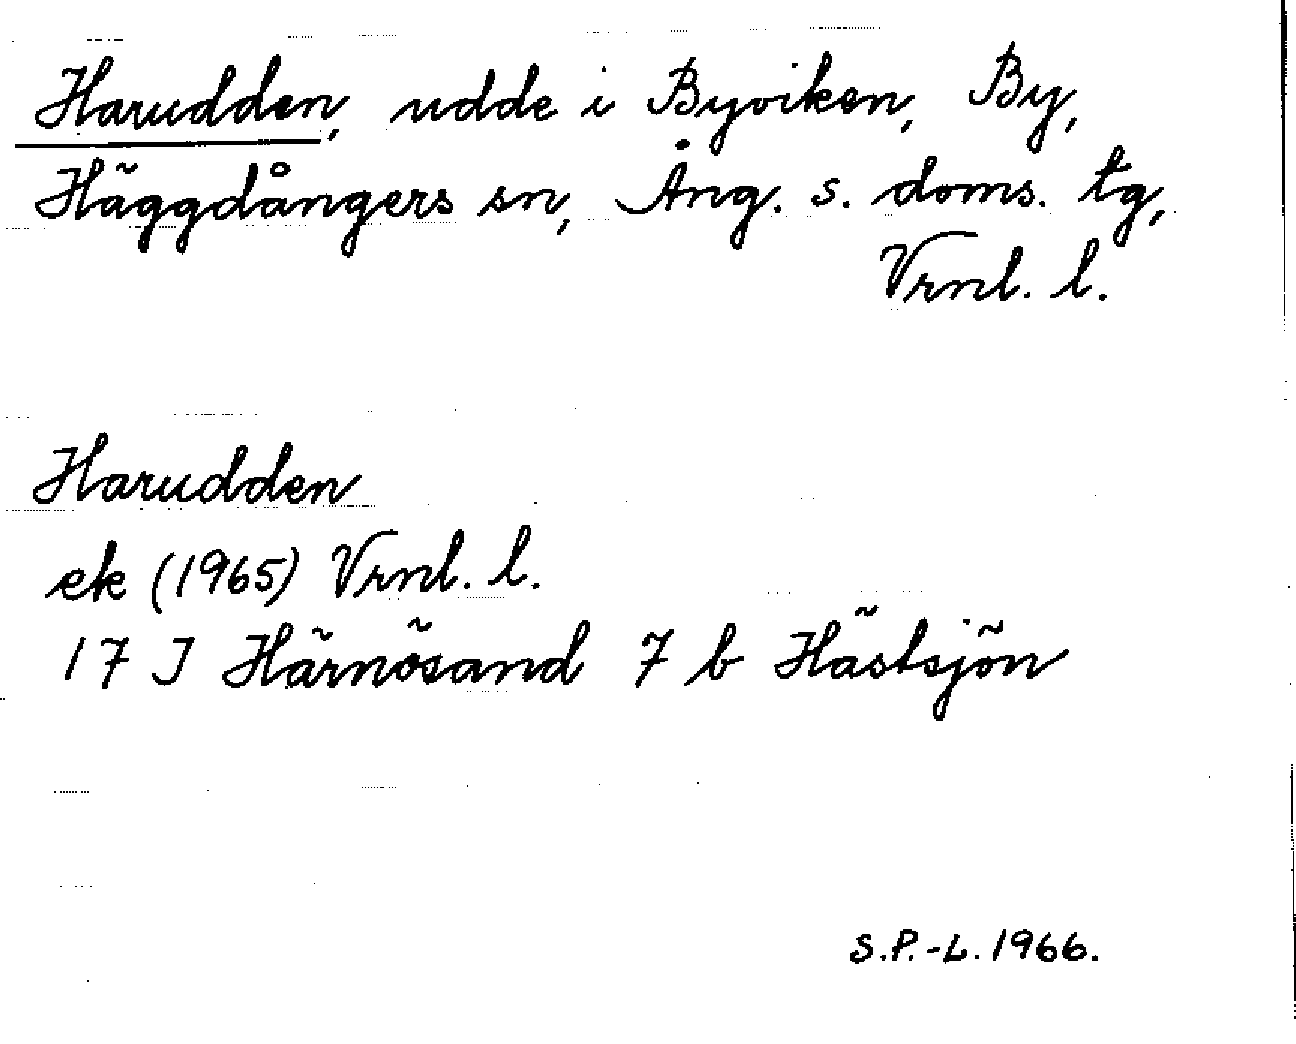 Harudden, udde i Byviken, By,
Häggdångers sn, Ång. s. doms. tg,
Vrnl. l.
Harudden
ek (1965) Vrnl. l.
17 J Härnösand 7 b Hästsjön
S.P.-L. 1966.